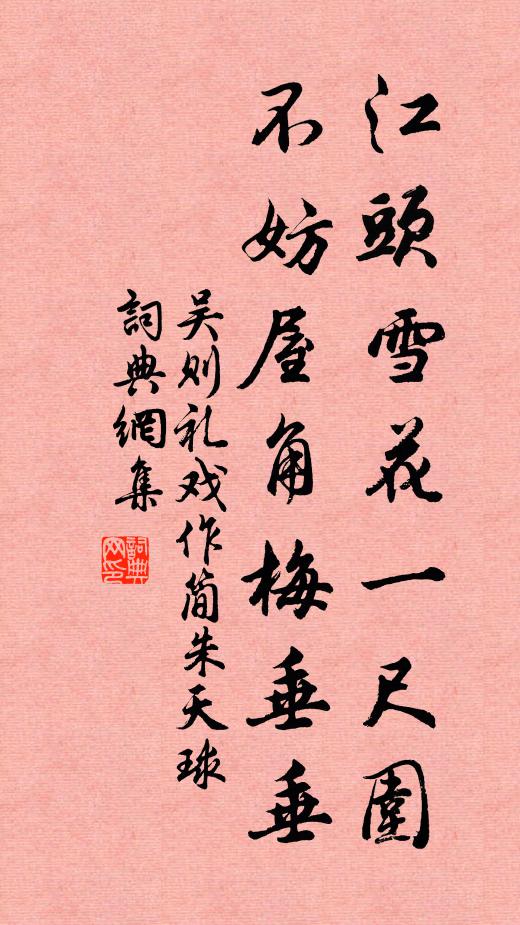 江頭雪花一尺圍
不妨屋角梅垂垂
吴则礼戏作简朱天球
詞典網集
詞典网印